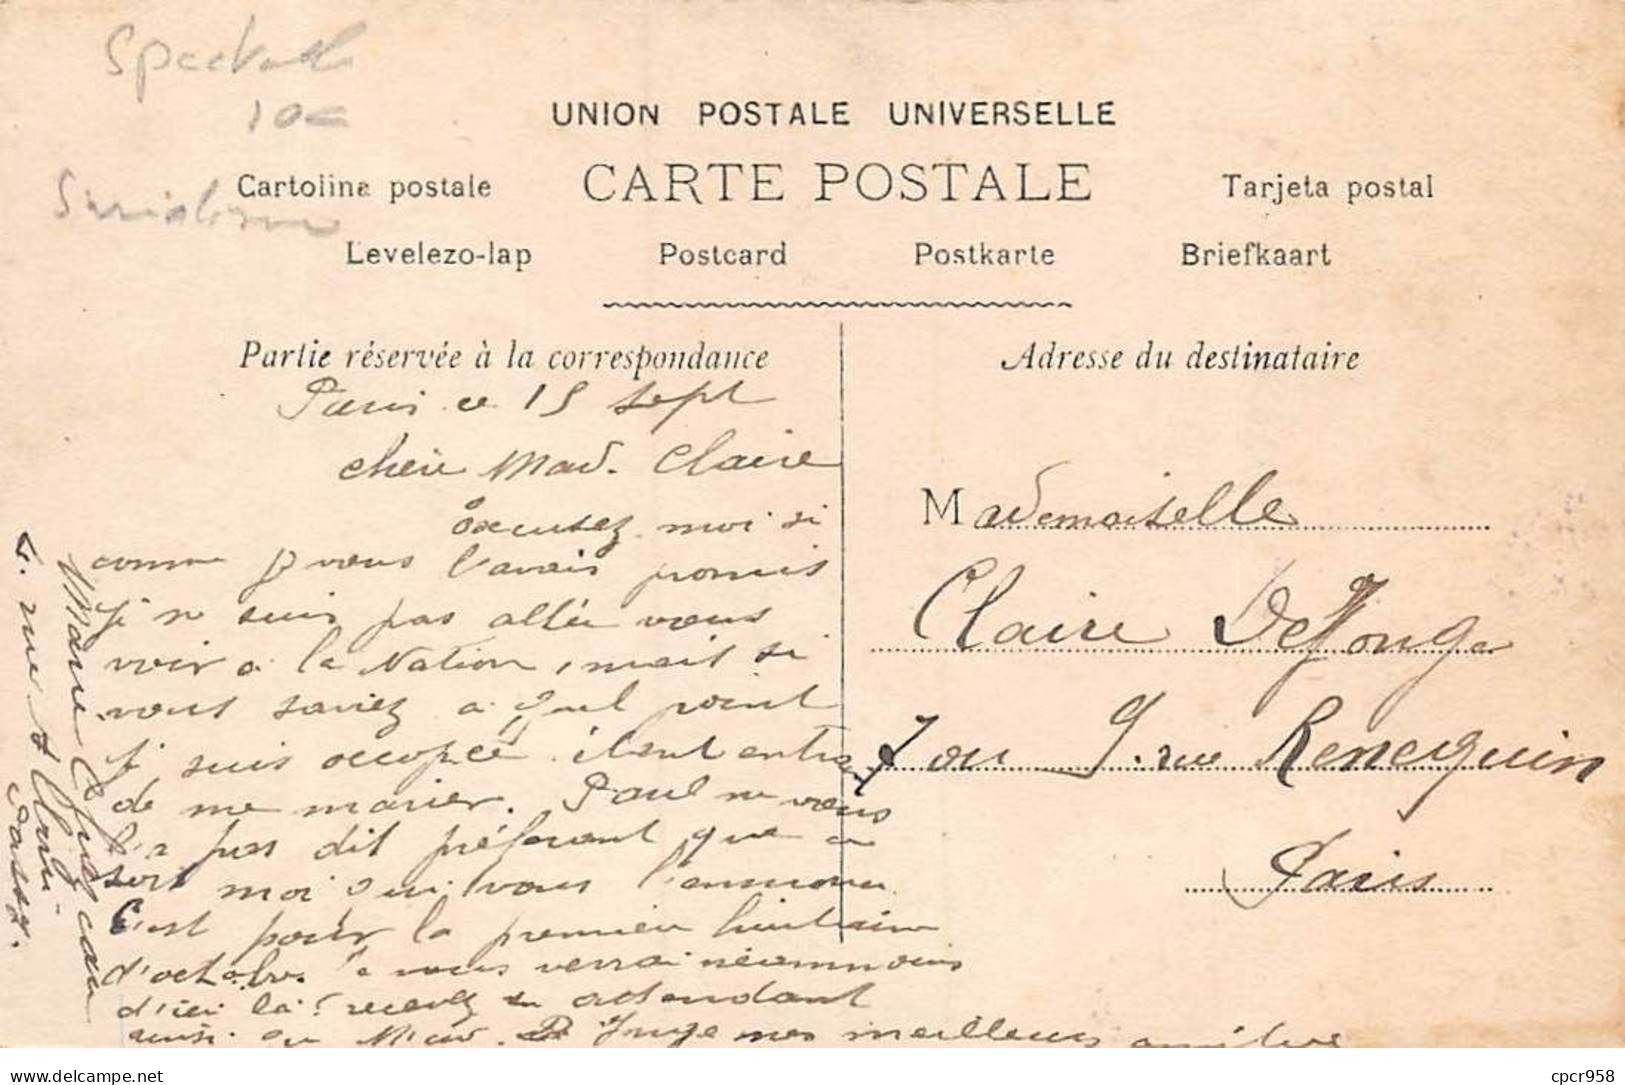 Spectacle
10€
UNION POSTALE UNIVERSELLE
CARTE POSTALE
Cartolina postale
Tarjeta postal
Levelezo-lap
Postcard
Postkarte
Briefkaart
Partie réservée à la correspondance
Adresse du destinataire
Paris ce 15 sept
chère Mad. Claire
Excusez moi si
comme je vous l'avais promis
je ne suis pas allée vous
voir à la Nation, mais si
vous saviez à quel point
je suis occupée, étant entrain
de me marier. Paul ne vous
l'a pas dit préférant que ce
soit moi qui vous l'annonce
C'est pour la première huitaine
d'octobre. Je vous verrai néanmoins
d'ici là! recevez en attendant
ainsi que Mad. De Jonge mes meilleures amitiés
Marie
4. rue
Passy.
Mademoiselle
Claire DeJonge
7 ou 9. rue Rennequin
Paris
Delcampe.net
cpcr958